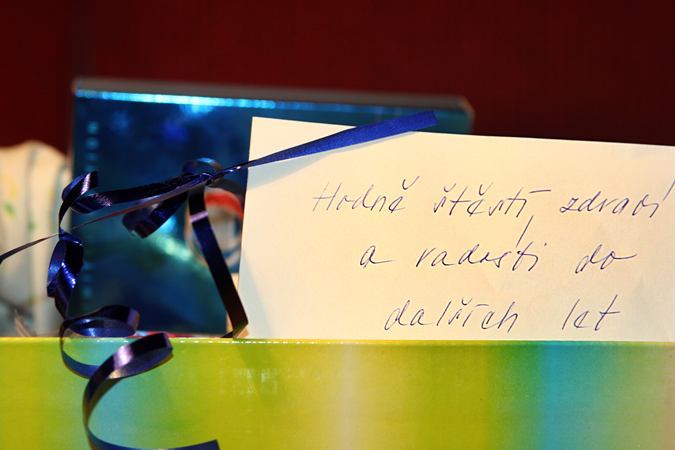 Hodně štěstí, zdraví
a radosti do
dalších let